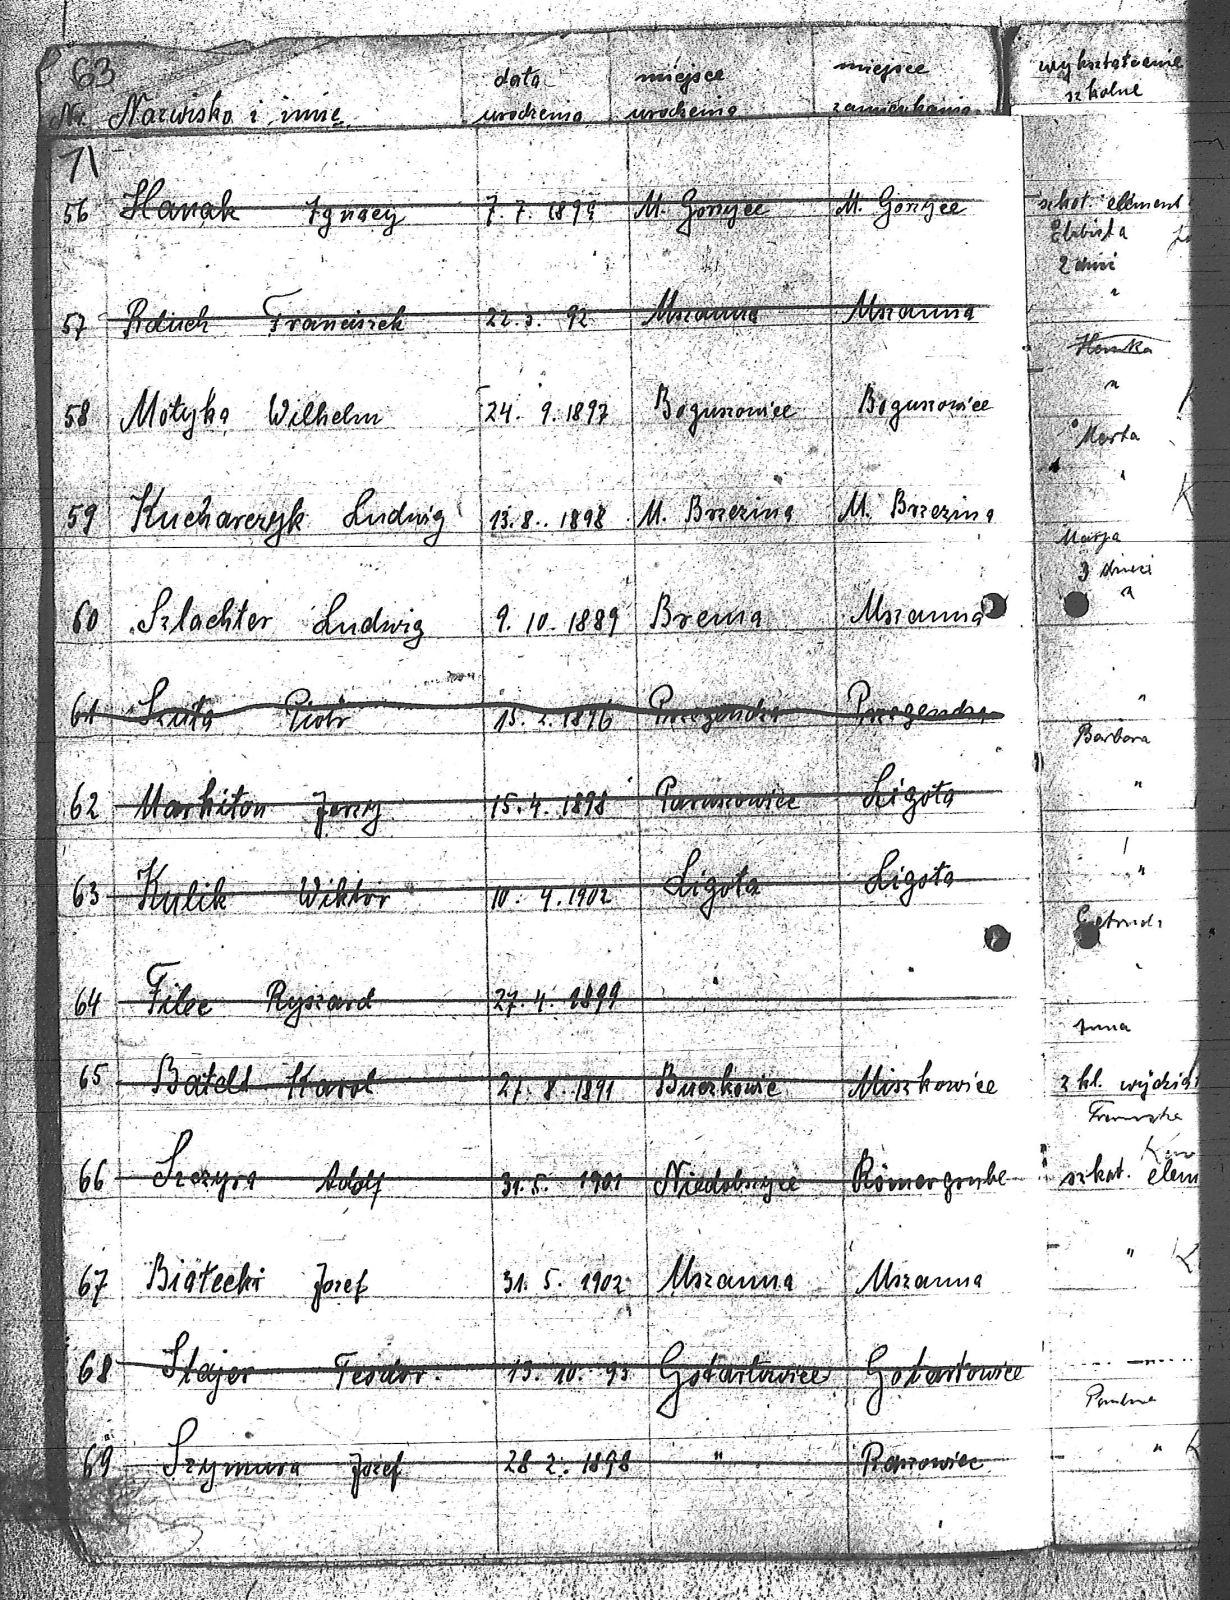 63
Nr. Nazwisko i imię data urodzenia miejsce urodzenia miejsce zamieszkania wykształcenie szkolne
71
56 Hanak Ignacy 7. 7. 1899 M. Gorzyce M. Gorzyce szkoł. element
Elżbieta
2 dzieci
57 Rduch Franciszek 22. 3. 92 Mszanna Mszanna "
58 Motyka Wilhelm 24. 9. 1897 Boguszowice Boguszowice "
Marta
59 Kucharczyk Ludwig 13. 8. 1898 M. Brzezina M. Brzezina "
Marja
3 dzieci
60 Szlachter Ludwig 9. 10. 1889 Brema Mszanna "
61 Szuta Piotr 15. 2. 1896 Przegendza Przegendza "
Barbara
62 Markiton Jerzy 15. 4. 1898 Paruszowice Ligota "
63 Kulik Wiktor 10. 4. 1902 Ligota Ligota "
64 Filec Ryszard 27. 4. 1899
Anna
65 Karol 27. 8. 1891 Miszkowice 2 kl. wydział
66 Adolf 31. 5. 1901 Niedobczyce Römergrube szkoł. elem
67 Białecki Jozef 31. 5. 1902 Mszanna Mszanna "
68 Stajer Teodor. 13. 10. 93 Gotartowice Gotartowice
69 Szymura Jozef 28. 2. 1898 " "